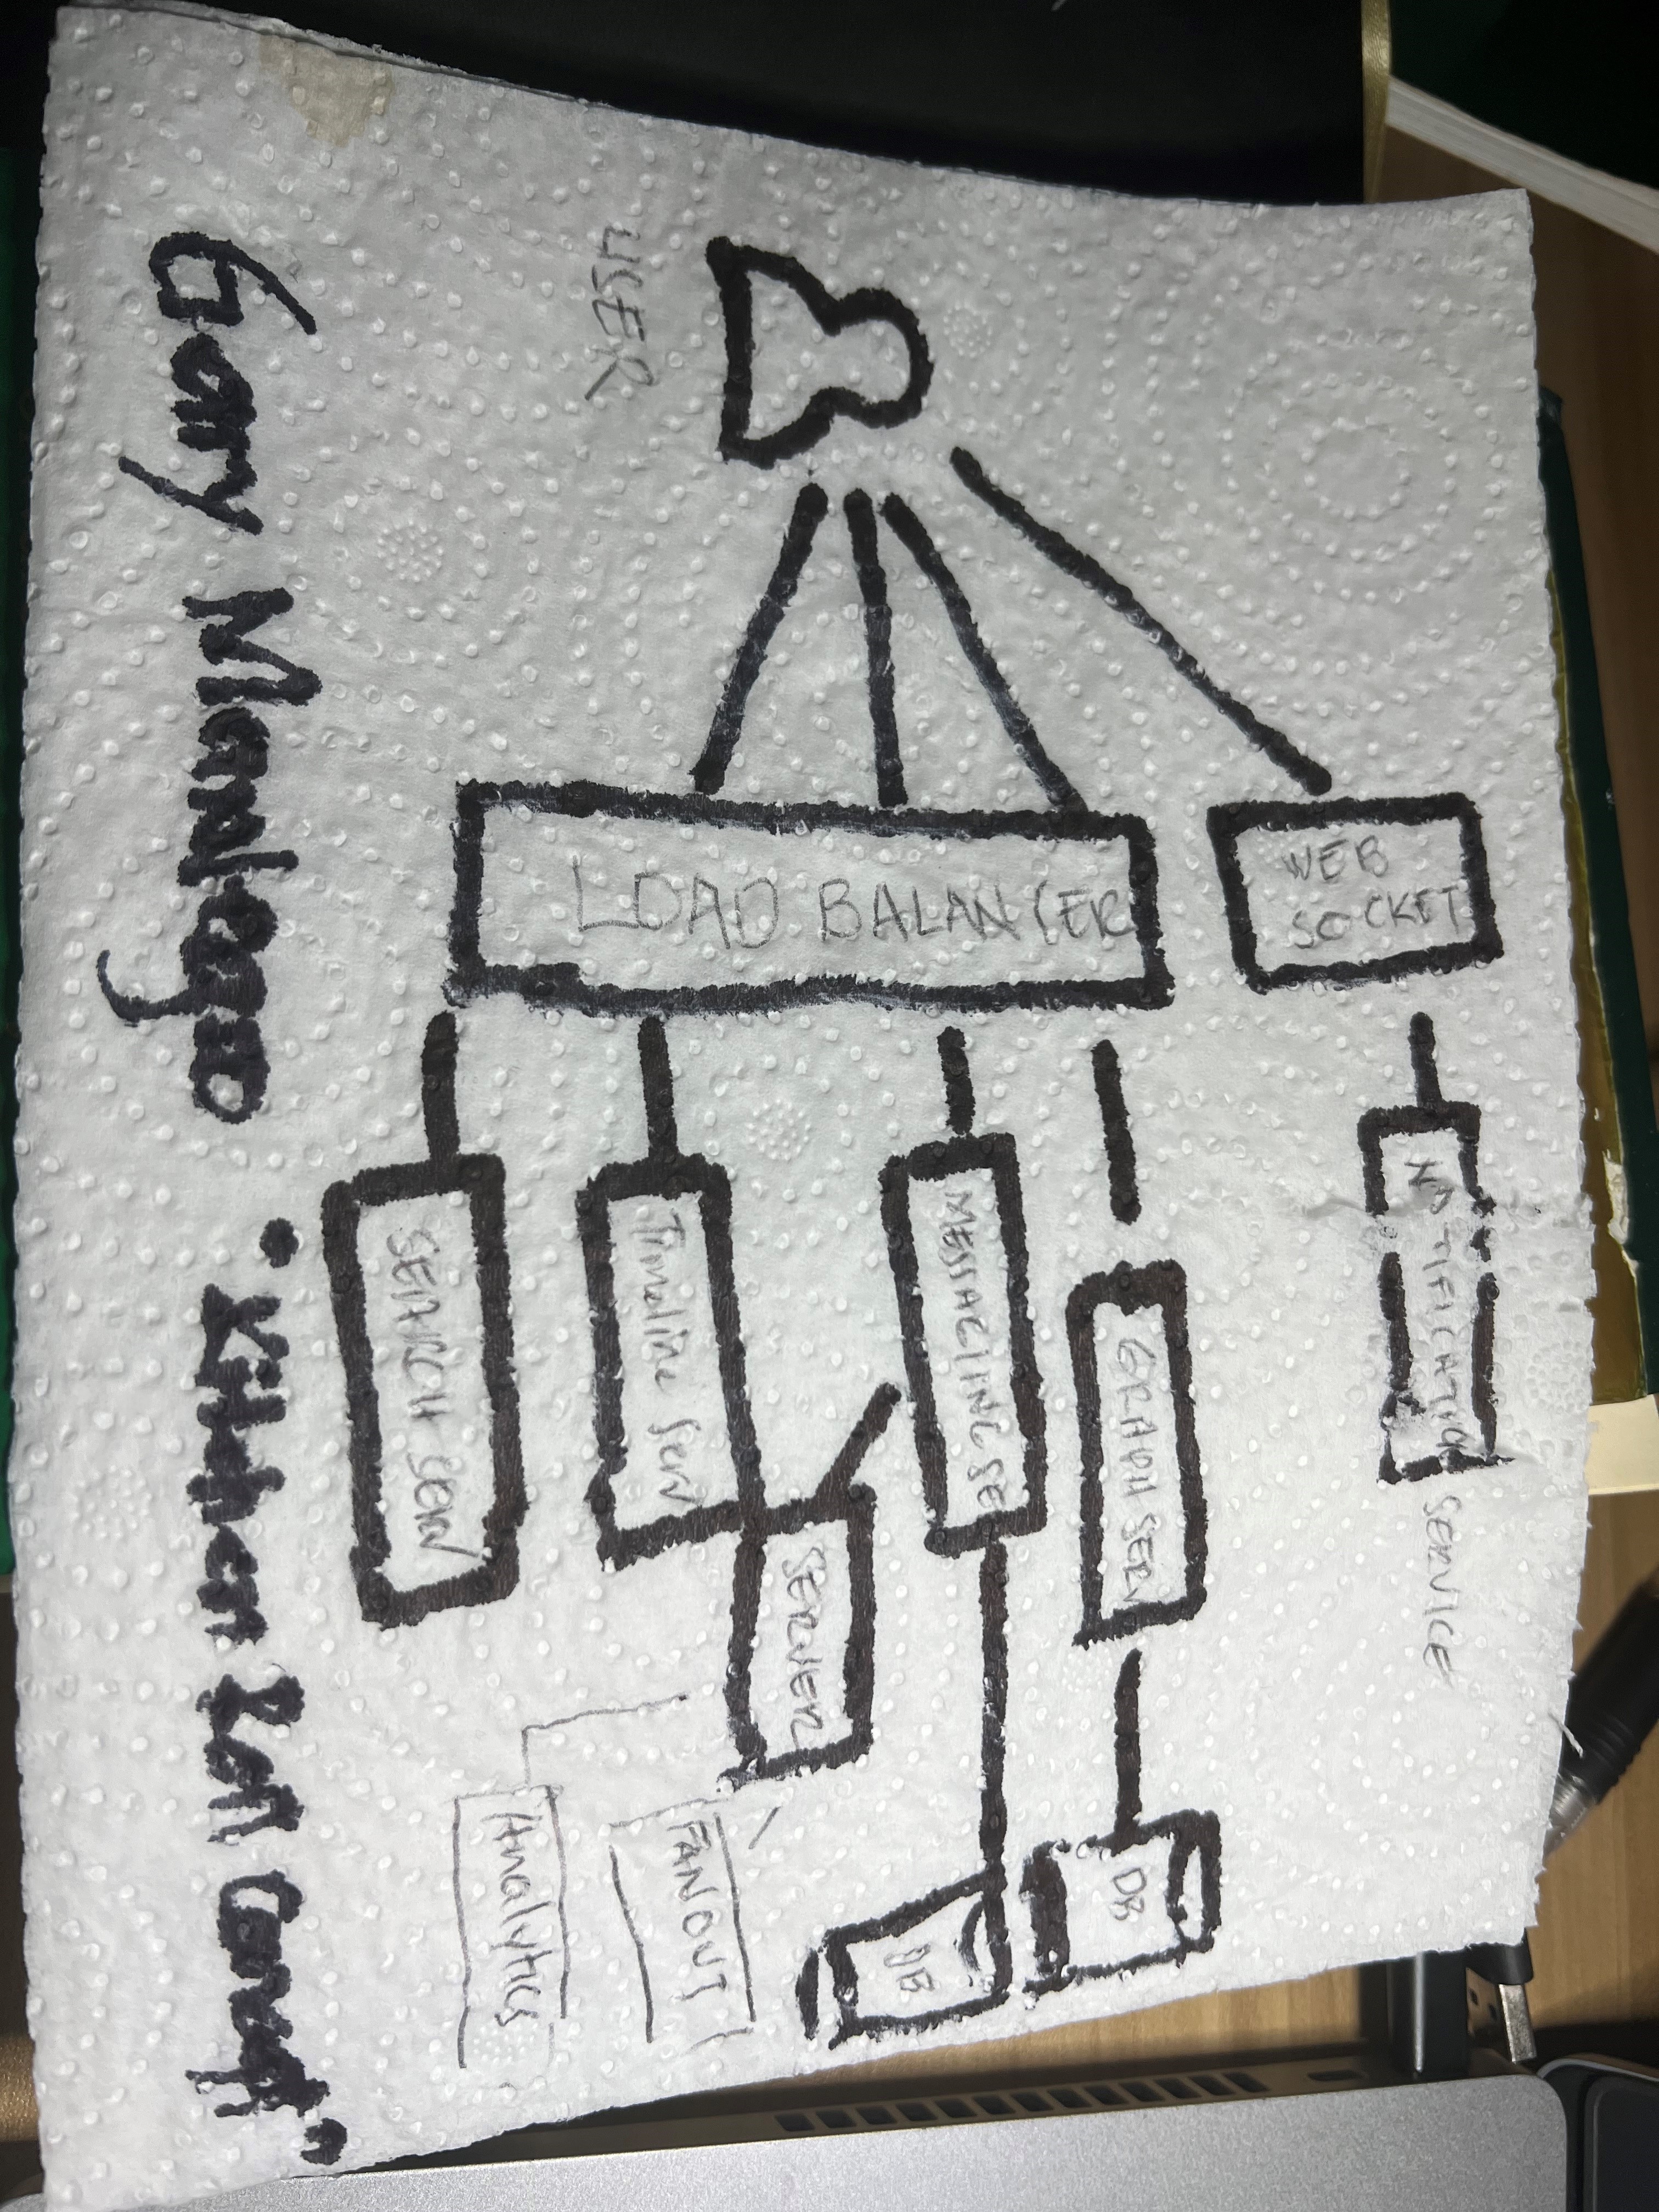 WEB
SOCKET
NOTIFICATION SERVICE
LOAD BALANCER
GRAPH SERV
DB
MESSAGIING SE
DB
SERVER
FANOUT
Timeline Serv
Analytics
SEARCH SERV
USER
Gary "Kitchen Roll Concept"